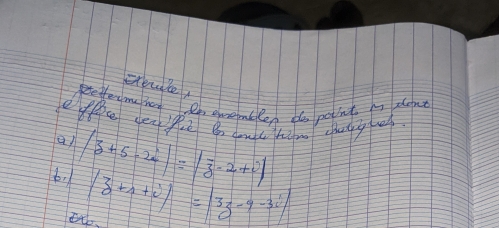 Exercice 1
Déterminer les ensembles des points M dont
l'affixe vérifie les conditions indiquées.
a) |z+5-2i| = |z-2+i|
b.) |z+1+i| = |3z-9-3i|